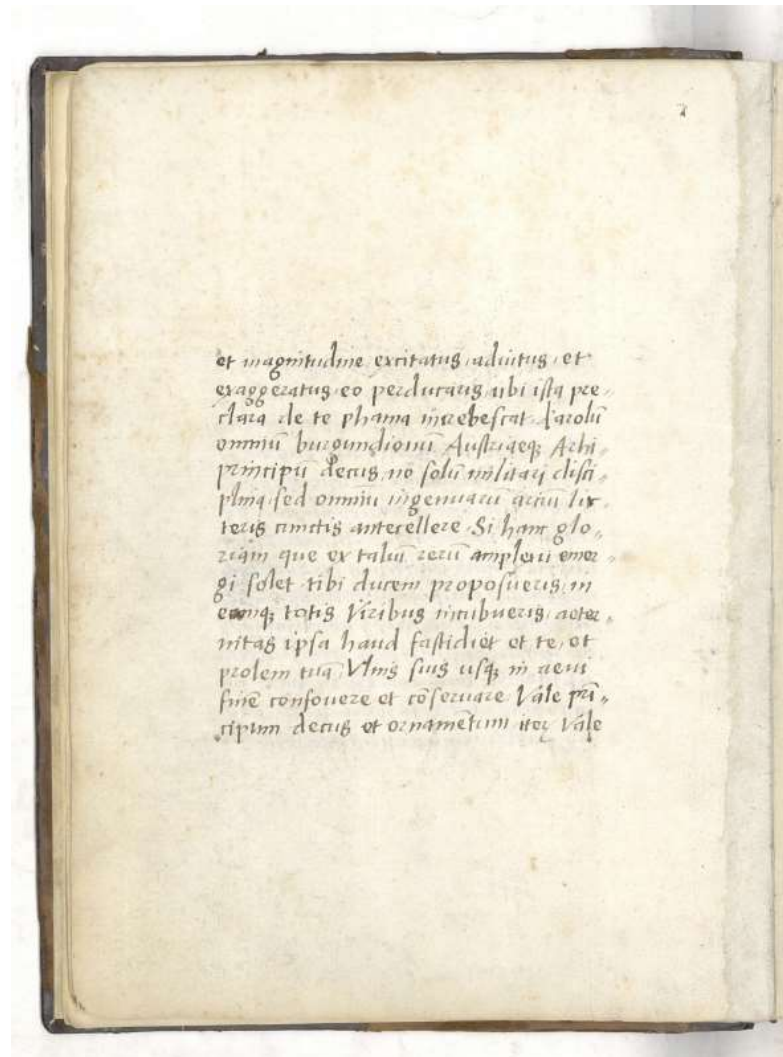 et magnitudine excitatus, adiutus, et
exaggeratus eo perducaris, ubi ista pre„
clara de te phama increbescat, Karolū
omniū burgundionū Austriaeq; Arhi„
principū decus, nō solū militari disci„
plina, sed omniū ingenuarū artiū lit„
teris cunctis antecellere. Si hanc glo„
riam que ex taliū rerū amplexu emer„
gi solet tibi ducem proposueris, in
eamq; totis Viribus incubueris, aeter„
nitas ipsa haud fastidiet et te, et
prolem tuā Vlnis suis usq; in aevi
finē confovere et cōservare. Vale prī„
cipum decus et ornamētum iteꝝ Vale